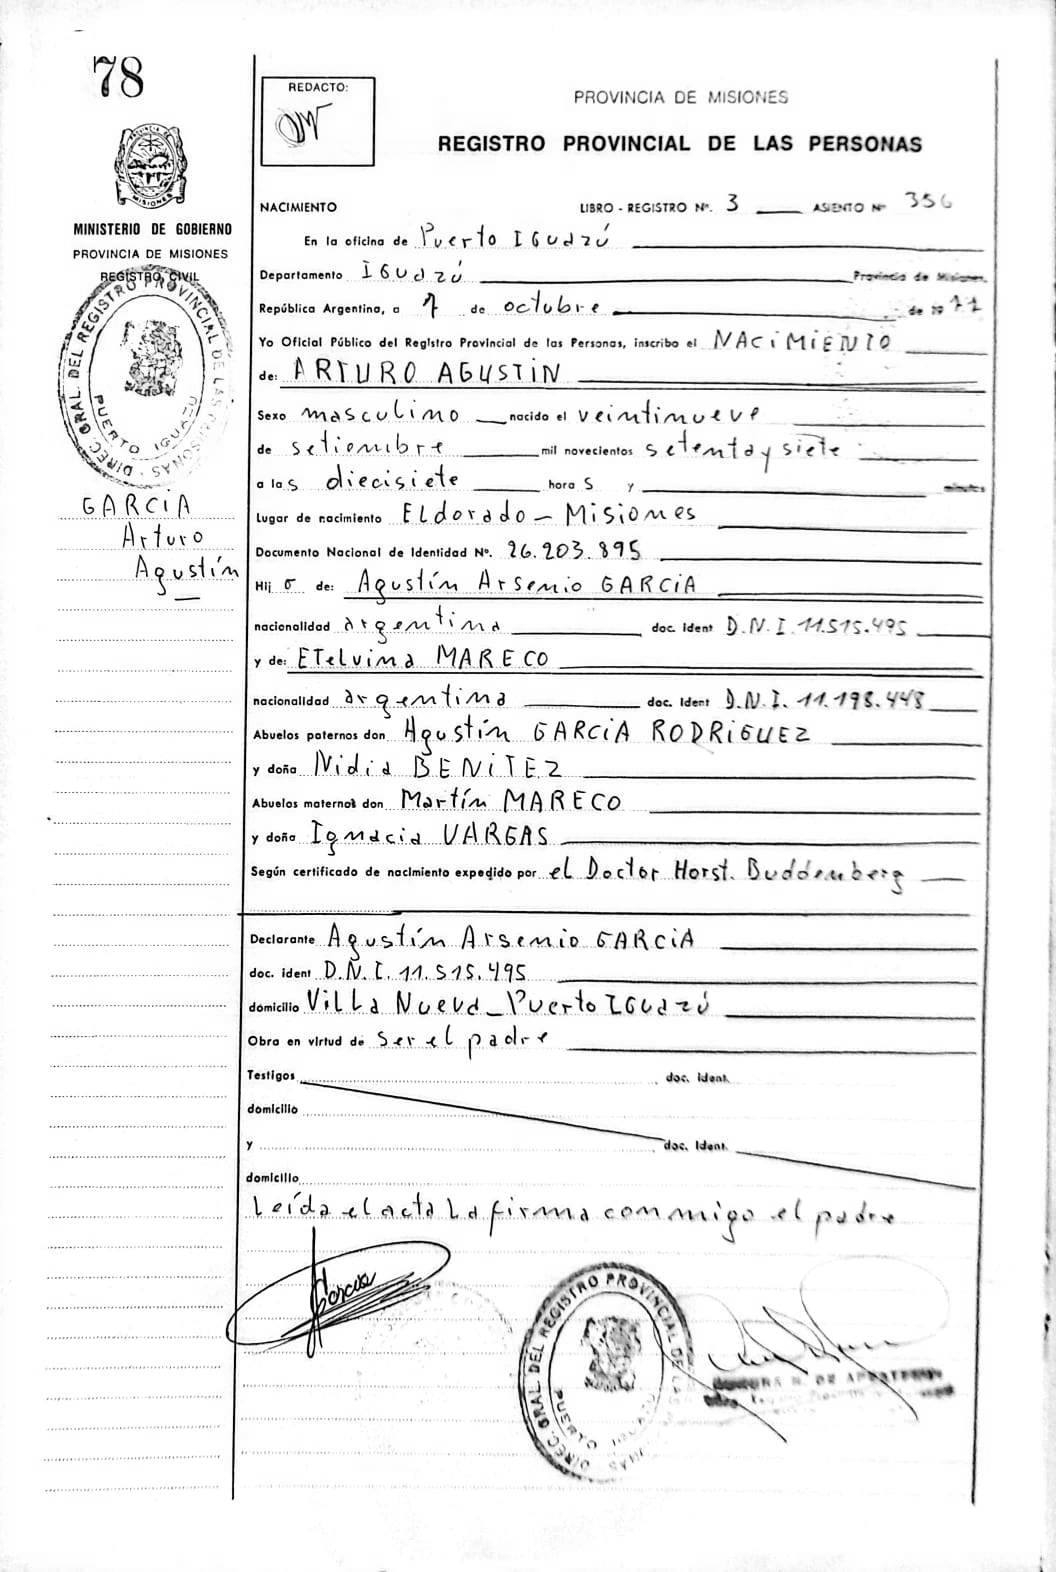 78
REDACTO:
PROVINCIA DE MISIONES
REGISTRO PROVINCIAL DE LAS PERSONAS
MINISTERIO DE GOBIERNO
PROVINCIA DE MISIONES
REGISTRO CIVIL
DIREC. GRAL. DEL REGISTRO PROVINCIAL DE LAS PERSONAS
PUERTO IGUAZU
GARCIA
Arturo
Agustín
NACIMIENTO LIBRO - REGISTRO Nº. 3 ASIENTO Nº 356
En la oficina de Puerto IGUazú
Departamento IGUazú Provincia de Misiones.
República Argentina, a 7 de octubre de 19 77
Yo Oficial Público del Registro Provincial de las Personas, inscribo el NACIMIENTO
de: ARTURO AGUSTIN
Sexo masculino nacido el veintinueve
de setiembre mil novecientos setenta y siete
a las diecisiete horas y minutos
Lugar de nacimiento ELdorado - Misiones
Documento Nacional de Identidad Nº. 26.203.895
Hijo de: Agustín Arsenio GARCIA
nacionalidad argentina doc. ident D.N.I. 11.515.495
y de: ETelvina MARECO
nacionalidad argentina doc. ident D.N.I. 11.198.448
Abuelos paternos don Agustín GARCIA RODRIGUEZ
y doña Nidia BENITEZ
Abuelos maternos don Martín MARECO
y doña Ignacia VARGAS
Según certificado de nacimiento expedido por el Doctor Horst. Buddemberg
Declarante Agustín Arsenio GARCIA
doc. ident D.N.I. 11.515.495
domicilio ViLLa Nueva - Puerto IGUazú
Obra en virtud de ser el padre
Testigos doc. ident.
domicilio
y doc. ident.
domicilio
Leída el acta La firma conmigo el padre
Garcia
DIREC. GRAL. DEL REGISTRO PROVINCIAL DE LAS PERSONAS
PUERTO IGUAZU